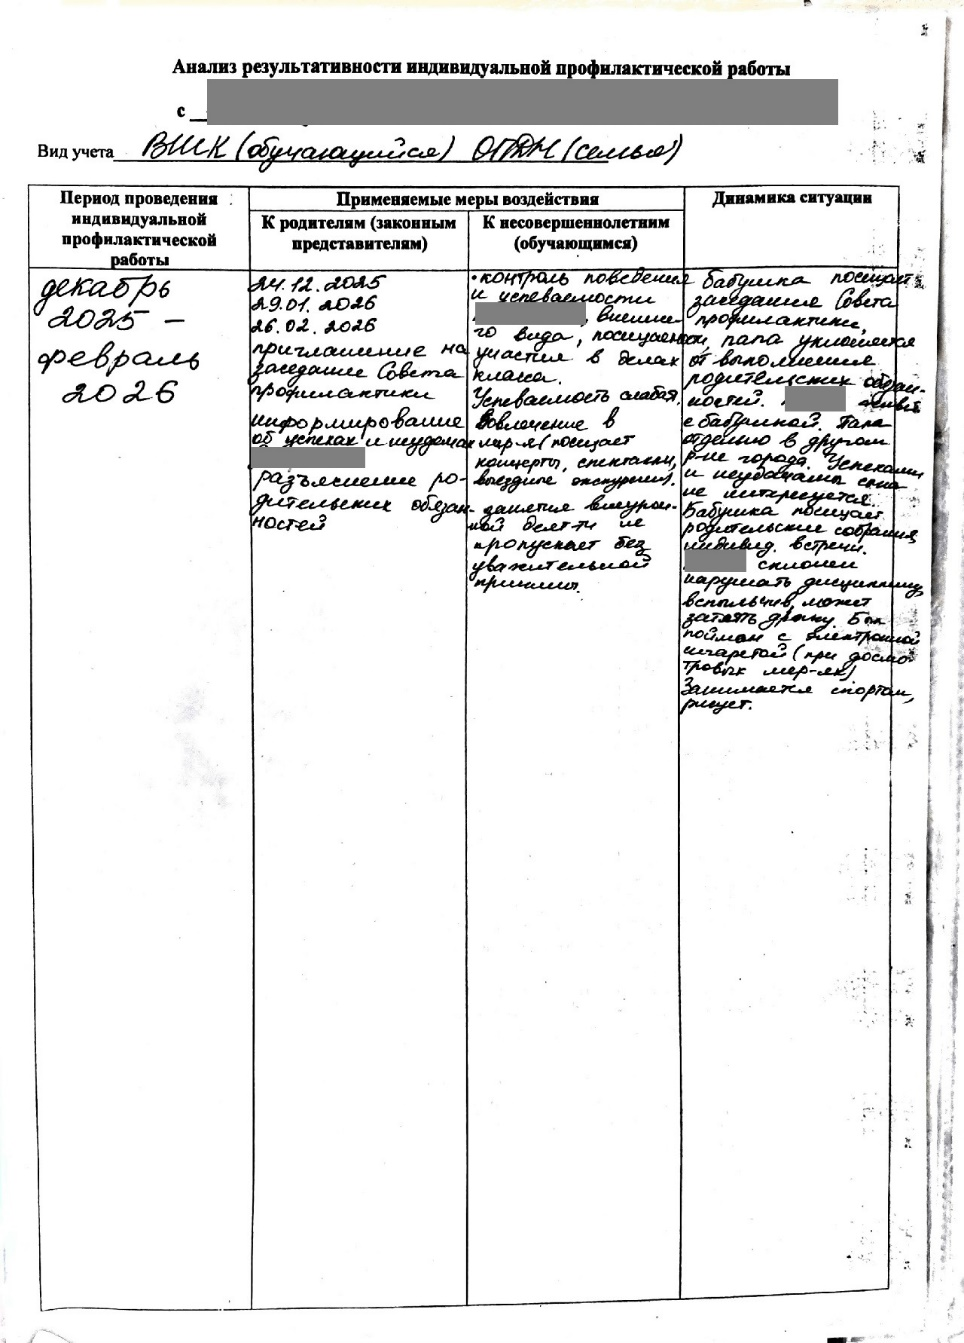 Анализ результативности индивидуальной профилактической работы
с
Вид учета ВШК (обучающийся) ОПДН (семья)
Период проведения
индивидуальной
профилактической
работы
Применяемые меры воздействия
К родителям (законным
представителям)
К несовершеннолетним
(обучающимся)
Динамика ситуации
декабрь
2025 –
февраль
2026
24.12.2025
29.01.2026
26.02.2026
приглашение на
заседание Совета
профилактики
информирование
об успехах и неудачах
разъяснение ро-
дительских обязан-
ностей
• контроль поведения
и успеваемости
, внешне-
го вида, посещаемости,
участия в делах
класса.
Успеваемость слабая.
Вовлечение в
мер-я (посещает
концерты, спектакли,
выездные экскурсии).
занятия внеуроч-
ной деят-ти не
пропускает без
уважительной
причины.
бабушка посещает
заседание Совета
профилактики,
папа уклоняется
от выполнения
родительских обязан-
ностей. живёт
с бабушкой. Папа
отдельно в другом
р-не города. Успехами
и неудачами сына
не интересуется.
Бабушка посещает
родительские собрания,
индивид. встречи.
склонен
нарушать дисциплину,
вспыльчив, может
затеять драку. Был
пойман с электронной
сигаретой (при досмо-
тровых мер-ях)
Занимается спортом,
рисует.